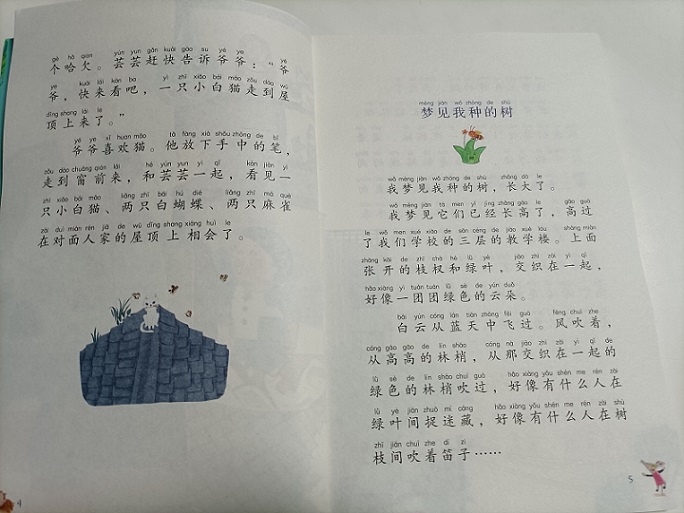 gè hā qian yún yun gǎn kuài gào su yé ye yé
个哈欠。芸芸赶快告诉爷爷：“爷
ye kuài lái kàn ba yì zhī xiǎo bái māo zǒu dào wū
爷，快来看吧，一只小白猫走到屋
dǐng shang lái le
顶上来了。”
yé ye xǐ huan māo tā fàng xià shǒu zhōng de bǐ
爷爷喜欢猫。他放下手中的笔，
zǒu dào chuāng qián lái hé yún yun yì qǐ kàn jiàn yì
走到窗前来，和芸芸一起，看见一
zhī xiǎo bái māo liǎng zhī bái hú dié liǎng zhī má què
只小白猫、两只白蝴蝶、两只麻雀
zài duì miàn rén jiā de wū dǐng shang xiāng huì le
在对面人家的屋顶上相会了。
4
mèng jiàn wǒ zhòng de shù
梦见我种的树
wǒ mèng jiàn wǒ zhòng de shù zhǎng dà le
我梦见我种的树，长大了。
wǒ mèng jiàn tā men yǐ jīng zhǎng gāo le gāo guò
我梦见它们已经长高了，高过
le wǒ men xué xiào de sān céng de jiào xué lóu shàng miàn
了我们学校的三层的教学楼。上面
zhāng kāi de zhī chà hé lǜ yè jiāo zhī zài yì qǐ
张开的枝杈和绿叶，交织在一起，
hǎo xiàng yì tuán tuán lǜ sè de yún duǒ
好像一团团绿色的云朵。
bái yún cóng lán tiān zhōng fēi guò fēng chuī zhe
白云从蓝天中飞过。风吹着，
cóng gāo gāo de lín shāo cóng nà jiāo zhī zài yì qǐ de
从高高的林梢，从那交织在一起的
lǜ sè de lín shāo chuī guò hǎo xiàng yǒu shén me rén zài
绿色的林梢吹过，好像有什么人在
lǜ yè jiān zhuō mí cáng hǎo xiàng yǒu shén me rén zài shù
绿叶间捉迷藏，好像有什么人在树
zhī jiān chuī zhe dí zi
枝间吹着笛子……
5